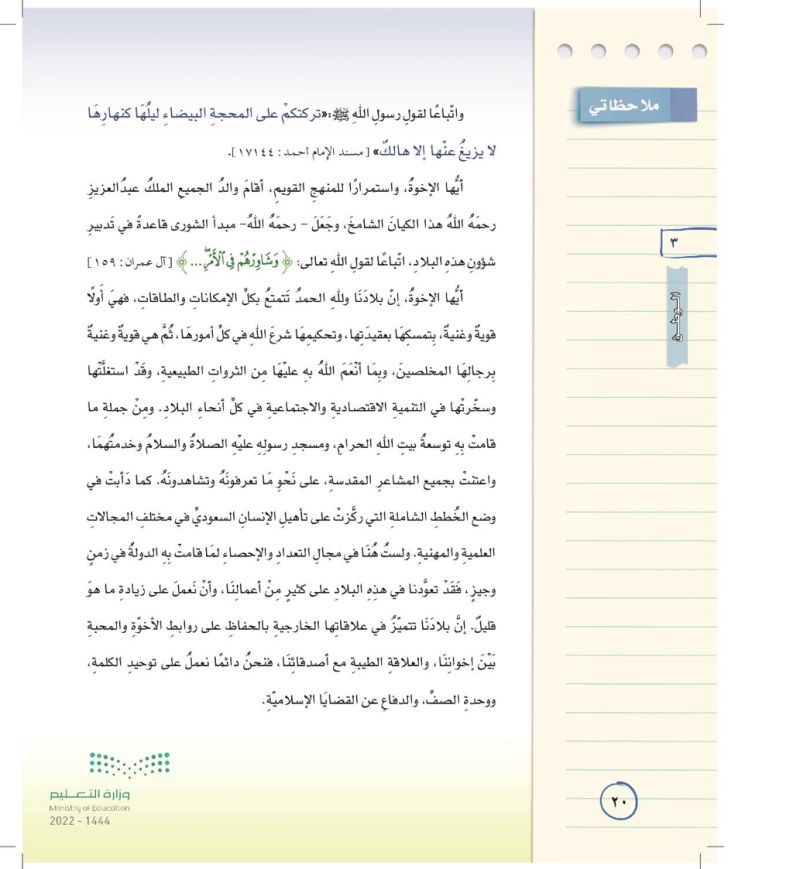 ملاحظاتي
٣
الـوطـن
واتّباعًا لقولِ رسولِ اللهِ ﷺ:«تركتكمْ على المحجةِ البيضاءِ ليلُهَا كنهارِهَا
لا يزيغُ عنْها إلا هالكٌ» [مسند الإمام أحمد: ١٧١٤٤].
أيُّها الإخوةُ، واستمرارًا للمنهجِ القويمِ، أقامَ والدُ الجميعِ الملكُ عبدُالعزيزِ
رحمَهُ اللهُ هذا الكيانَ الشامخَ، وجَعَلَ - رحمَهُ اللهُ- مبدأَ الشورى قاعدةً في تَدبيرِ
شؤونِ هذهِ البلادِ، اتّباعًا لقولِ اللهِ تعالى: ﴿ وَشَاوِرْهُمْ فِي ٱلْأَمْرِۖ ... ﴾ [آل عمران: ١٥٩]
أيُّها الإخوةُ، إنّ بلادَنَا وللهِ الحمدُ تَتمتعُ بكلِّ الإمكاناتِ والطاقاتِ، فهيَ أولًا
قويةٌ وغنيةٌ، بِتمسكِهَا بعقيدَتِها، وتحكيمِهَا شرعَ اللهِ في كلِّ أمورهَا، ثُمَّ هي قويةٌ وغنيةٌ
برجالِهَا المخلصينَ، وبِمَا أنْعَمَ اللهُ بهِ عليْهَا مِن الثرواتِ الطبيعيةِ، وقَدْ استغلَّتْها
وسخّرتْها في التنميةِ الاقتصاديةِ والاجتماعيةِ في كلِّ أنحاءِ البلادِ. ومِنْ جملةِ ما
قامتْ بِهِ توسعةُ بيتِ اللهِ الحرامِ، ومسجدِ رسولِهِ عليْهِ الصلاةُ والسلامُ وخدمتُهمَا،
واعتنتْ بجميعِ المشاعرِ المقدسةِ، على نَحْوِ مَا تعرفونَهُ وتشاهدونَهُ. كما دَأبتْ في
وضعِ الخُططِ الشاملةِ التي ركَّزتْ على تأهيلِ الإنسانِ السعوديِّ في مختلفِ المجالاتِ
العلميةِ والمهنيةِ. ولستُ هُنَا في مجالِ التعدادِ والإحصاءِ لمَا قامتْ بِهِ الدولةُ في زمنٍ
وجيزٍ، فَقَدْ تعوَّدنا في هذِهِ البلادِ على كثيرٍ مِنْ أعمالنَا، وأنْ نَعملَ على زيادةِ ما هوَ
قليلٌ. إنَّ بلادَنَا تتميّزُ في علاقاتِها الخارجيةِ بالحفاظِ على روابطِ الأخوّةِ والمحبةِ
بَيْنَ إخواننَا، والعلاقةِ الطيبةِ مع أصدقائنَا، فنحنُ دائمًا نعملُ على توحيدِ الكلمةِ،
ووحدةِ الصفِّ، والدفاعِ عن القضايَا الإسلاميّةِ.
وزارة التعـــليم
Ministry of Education
2022 - 1444
٢٠